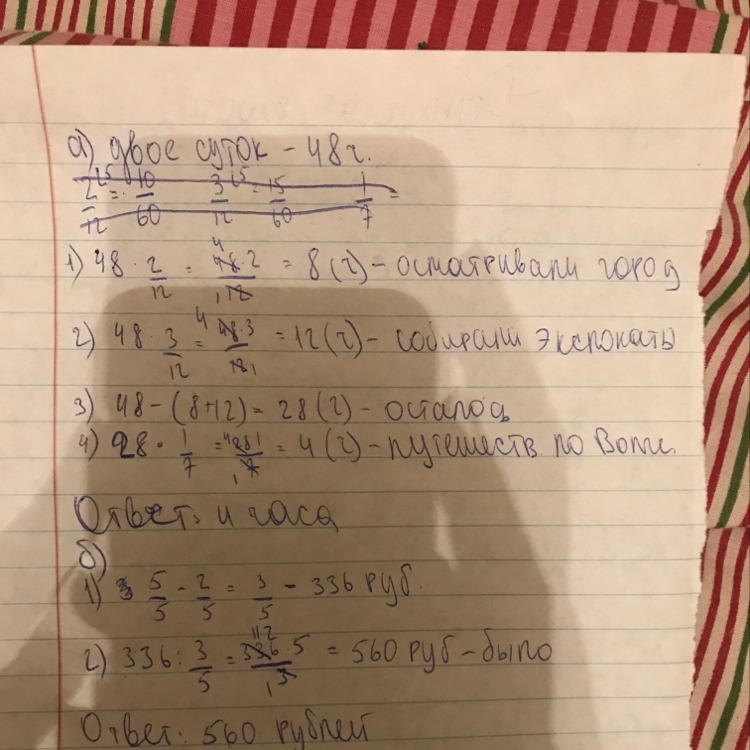 а) двое суток - 48 ч.
2/12 = 10/60 3/12 = 15/60 1/7 =
1) 48 · 2/12 = 48·2/12 = 8 (ч) - осматривали город
2) 48 · 3/12 = 48·3/12 = 12 (ч) - собирали экспонаты
3) 48 - (8+12) = 28 (ч) - осталось
4) 28 · 1/7 = 28·1/7 = 4 (ч) - путешеств по Волге.
Ответ: 4 часа
б)
1) 5/5 - 2/5 = 3/5 - 336 руб.
2) 336 : 3/5 = 336·5/3 = 560 руб - было
Ответ: 560 рублей